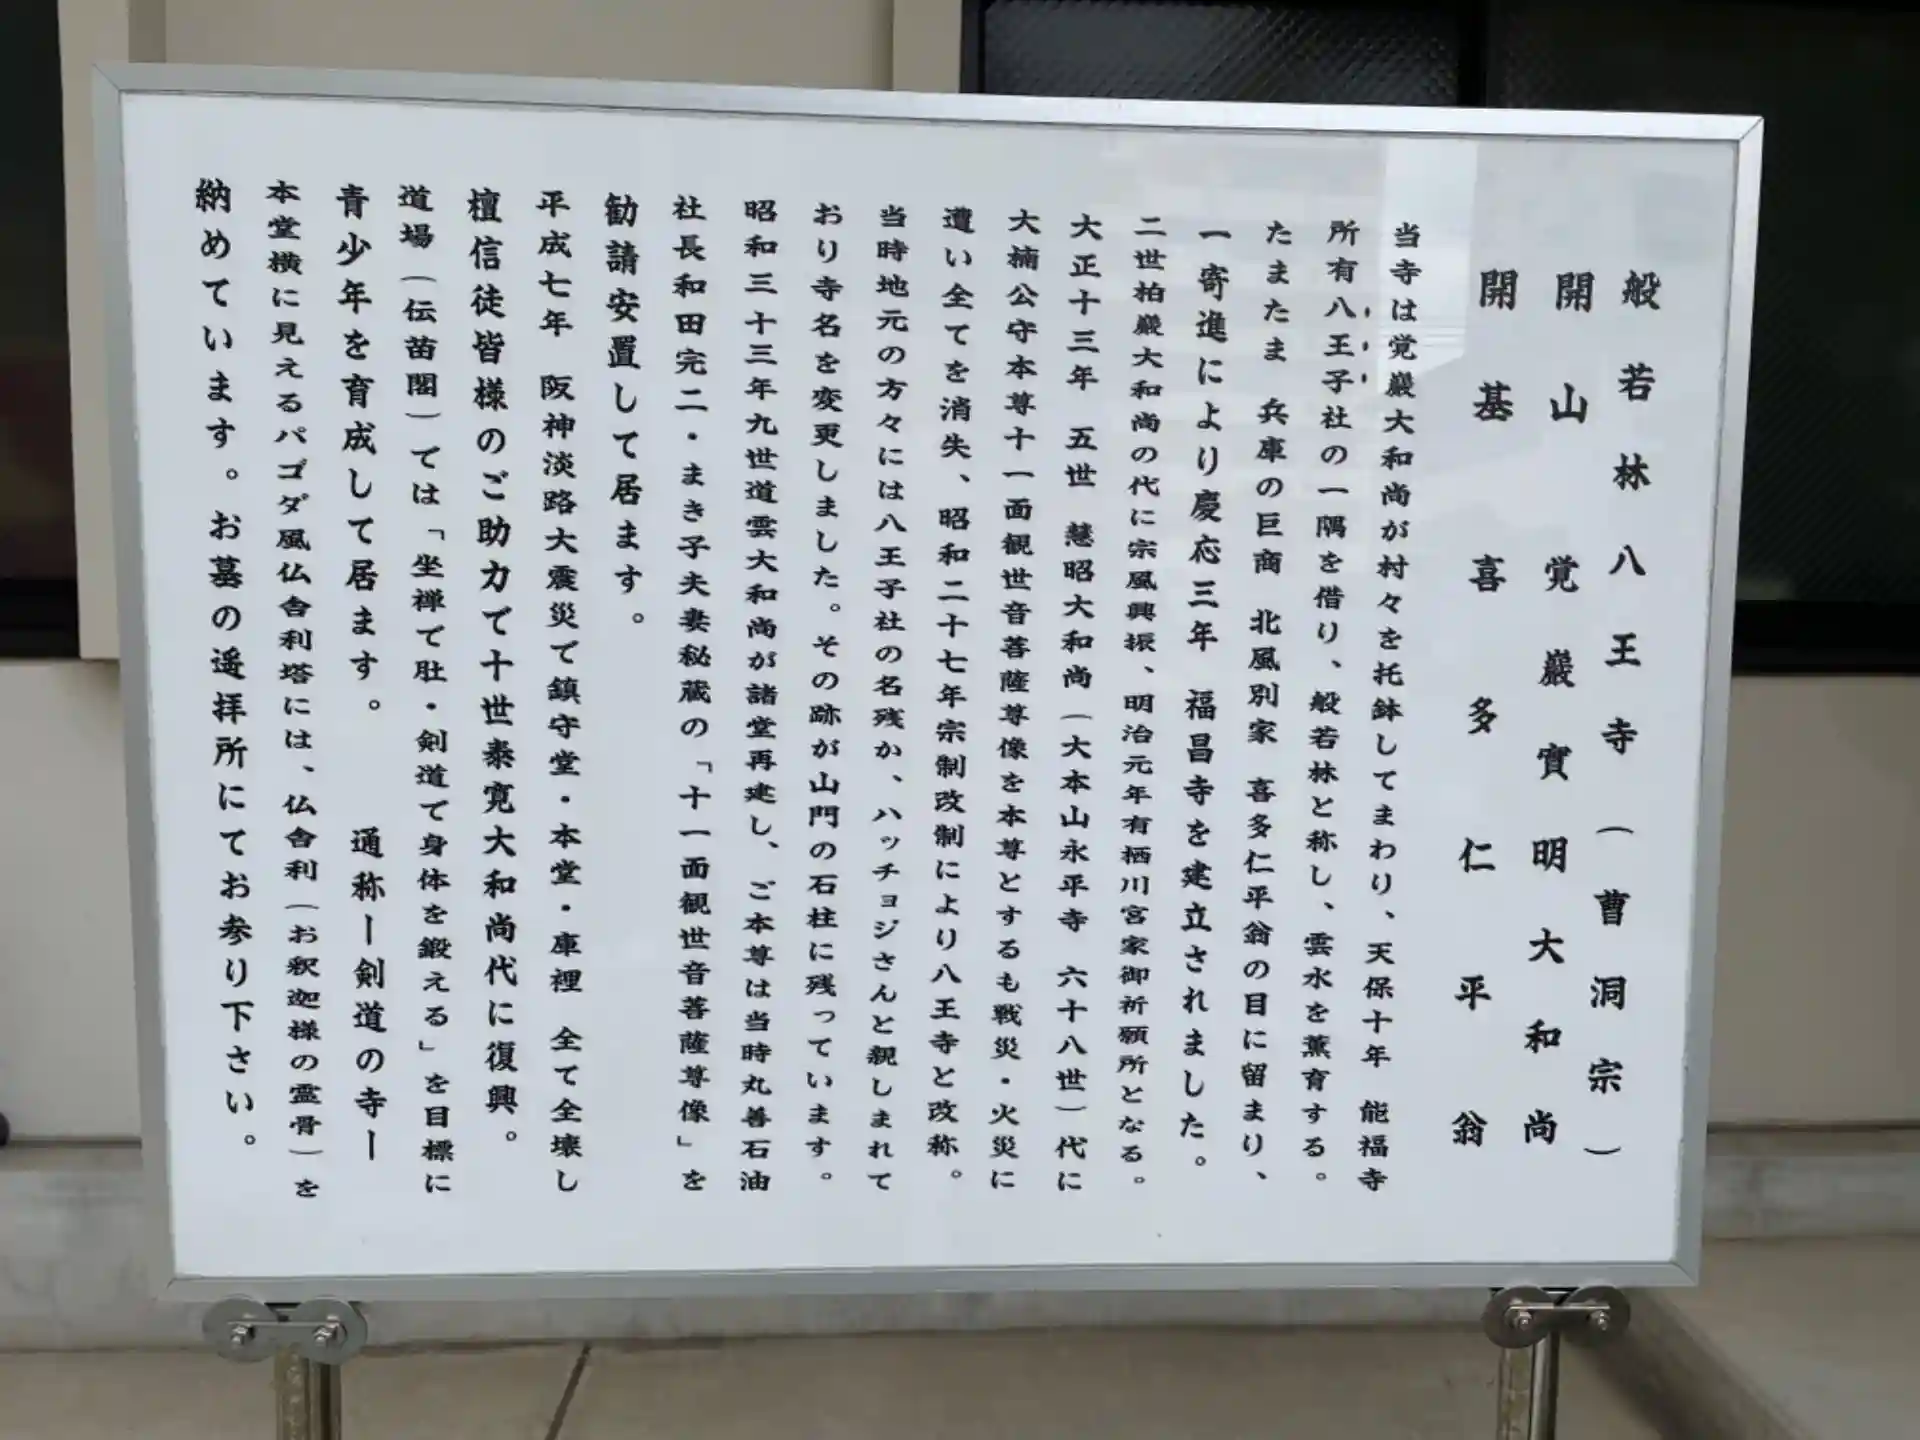 般若林八王寺（曹洞宗）
開山　覚巖實明大和尚
開基　喜多仁平翁
当寺は覚巖大和尚が村々を托鉢してまわり、天保十年　能福寺
所有八王子社の一隅を借り、般若林と称し、雲水を薫育する。
たまたま　兵庫の巨商　北風別家　喜多仁平翁の目に留まり、
一寄進により慶応三年　福昌寺を建立されました。
二世柏巖大和尚の代に宗風興振、明治元年有栖川宮家御祈願所となる。
大正十三年　五世　慧昭大和尚（大本山永平寺　六十八世）代に
大楠公守本尊十一面観世音菩薩尊像を本尊とするも戦災・火災に
遭い全てを消失、昭和二十七年宗制改制により八王寺と改称。
当時地元の方々には八王子社の名残か、ハッチョジさんと親しまれて
おり寺名を変更しました。その跡が山門の石柱に残っています。
昭和三十三年九世道雲大和尚が諸堂再建し、ご本尊は当時丸善石油
社長和田完二・まき子夫妻秘蔵の「十一面観世音菩薩尊像」を
勧請安置して居ます。
平成七年　阪神淡路大震災で鎮守堂・本堂・庫裡　全て全壊し
檀信徒皆様のご助力で十世泰寛大和尚代に復興。
道場（伝苗閣）ては「坐禅で肚・剣道て身体を鍛える」を目標に
青少年を育成して居ます。　　通称ー剣道の寺ー
本堂横に見えるパゴダ風仏舎利塔には、仏舎利（お釈迦様の霊骨）を
納めています。お墓の遥拝所にてお参り下さい。